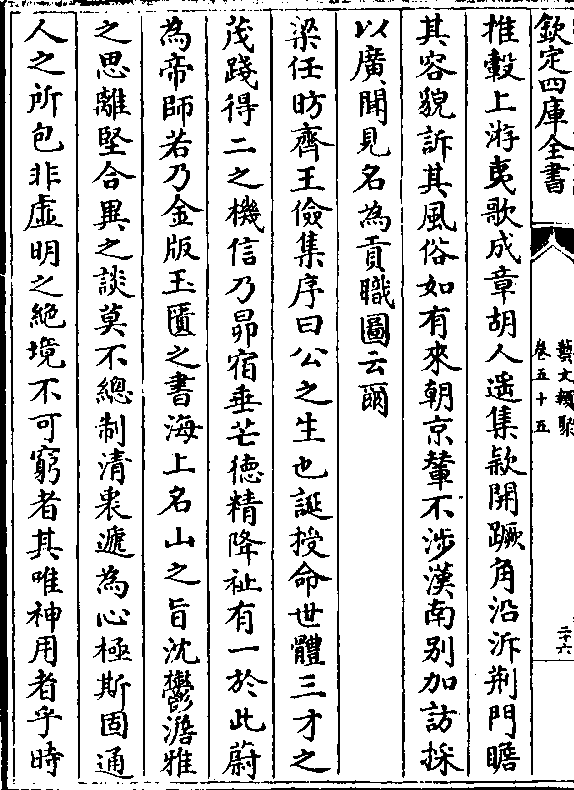 欽定四庫全書
藝文類聚
卷五十五
二十六
推轂上游夷歌成章胡人遥集款開蹶角沿泝荆門瞻
其容貌訴其風俗如有來朝京輦不涉漢南别加訪採
以廣聞見名為貢職圖云爾
梁任昉齊王儉集序曰公之生也誕授命世體三才之
茂踐得二之機信乃昴宿垂芒德精降祉有一於此蔚
為帝師若乃金版玉匱之書海上名山之旨沈鬱澹雅
之思離堅合異之談莫不總制清衷遞為心極斯固通
人之所包非虚明之絶境不可窮者其唯神用者乎時